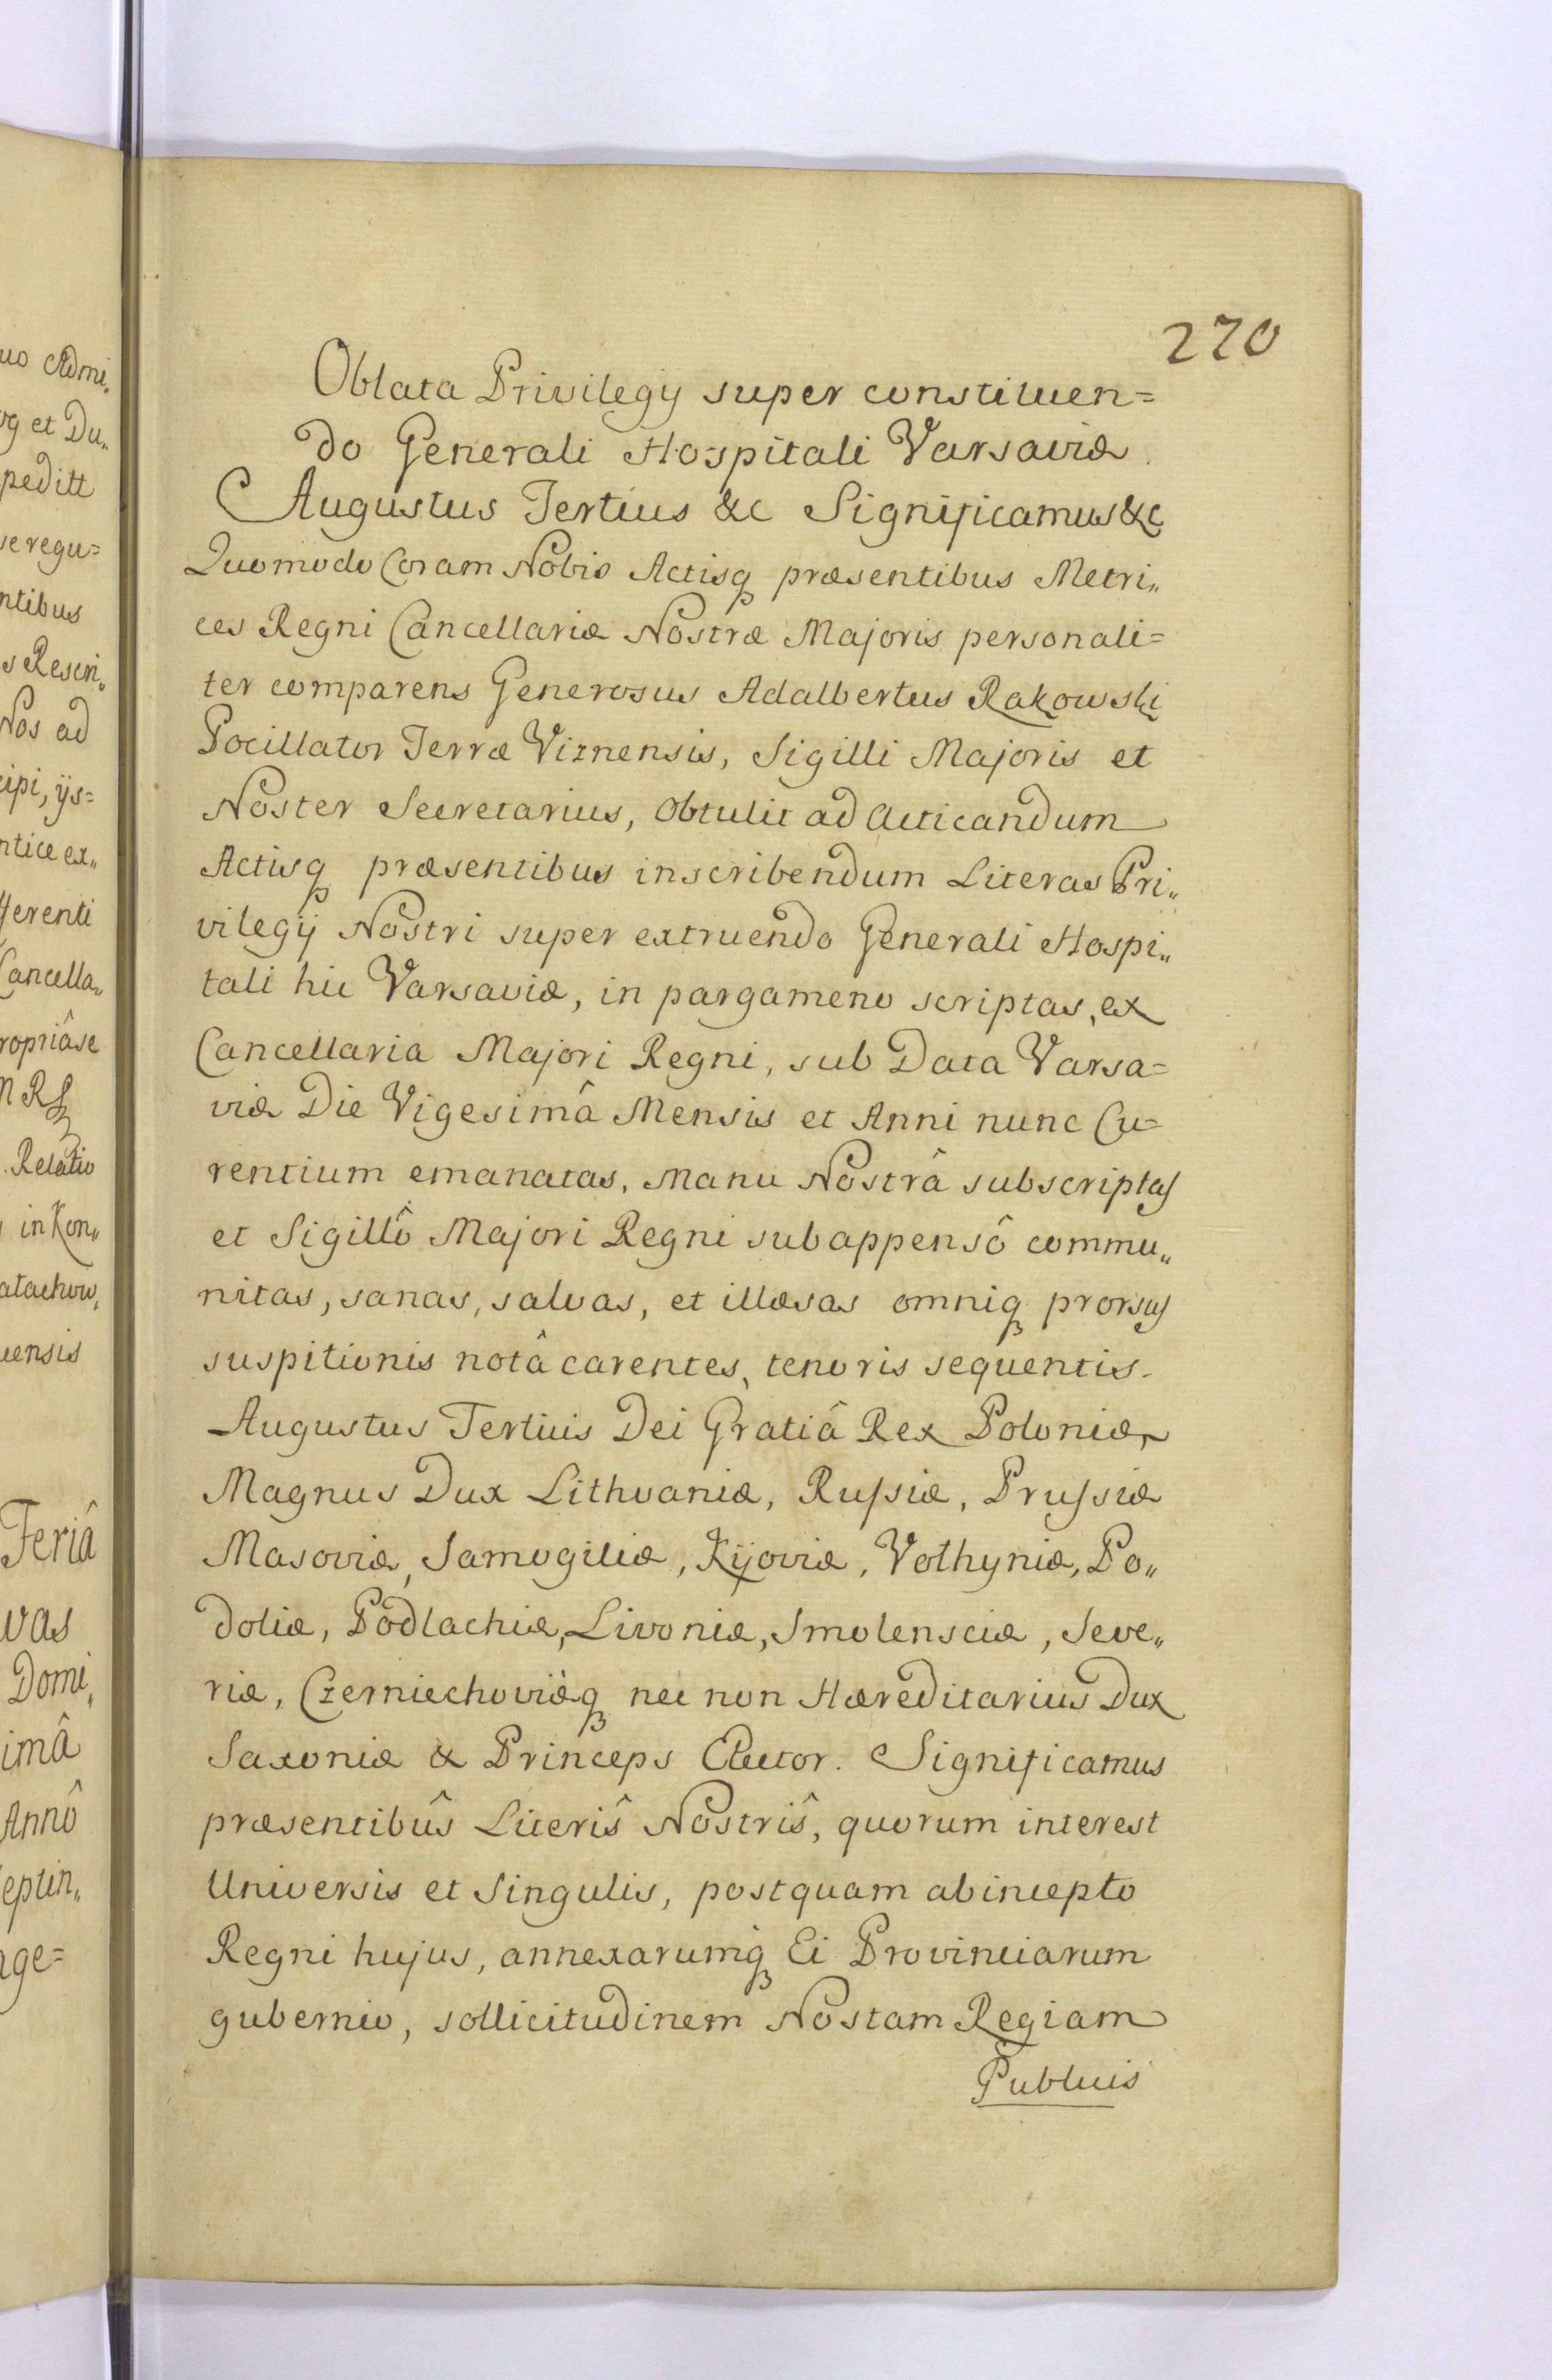 270
Oblata Privilegij super constituen=
do Generali Hospitali Varsaviæ
Augustus Tertius &c Significamus &c
Quomodo Coram Nobis Actisq præsentibus Metri„
ces Regni Cancellariæ Nostræ Majoris personali=
ter comparens Generosus Adalbertus Rakowski
Pocillator Terræ Viznensis, Sigilli Majoris et
Noster Secretarius, obtulit ad acticandum
Actisq præsentibus inscribendum Literas Pri„
vilegij Nostri super extruendo Generali Hospi„
tali hic Varsaviæ, in pargameno scriptas, ex
Cancellaria Majori Regni, sub Data Varsa=
viæ Die Vigesimâ Mensis et Anni nunc Cu=
rentium emanatas, Manu Nostrâ subscriptas
et Sigillô Majori Regni subappensô commu„
nitas, sanas, salvas, et illæsas omniq prorsus
suspitionis notâ carentes, tenoris sequentis.
Augustus Tertius Dei Gratiâ Rex Poloniæ,
Magnus Dux Lithvaniæ, Russiæ, Prussiæ
Masoviæ, Samogitiæ, Kijoviæ, Volhyniæ, Po„
doliæ, Podlachiæ, Livoniæ, Smolensciæ, Seve„
riæ, Czerniechoviæq nec non Hæreditarius Dux
Saxoniæ & Princeps Elector. Significamus
præsentibûs Literîs Nostrîs, quorum interest
Universis et Singulis, postquam ab incepto
Regni hujus, annexarumq Ei Provinciarum
gubernio, sollicitudinem Nostam Regiam
Publicis
uo Admi„
et Du„
peditt
se regu=
ntibus
s Rescri„
Nos ad
cipi, ijs=
ntice ex„
fferenti
Cancella„
ropriâ se
Relatio
in Kon„
uensis
Feriâ
vas
Domi„
imâ
Annô
eptin„
age=